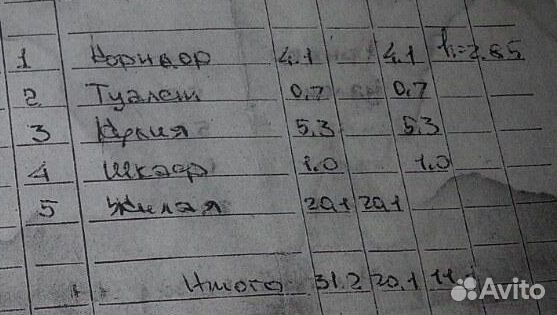 1 Коридор 4.1 4.1 h=2.65
2 Туалет 0,7 0,7
3 Кухня 5.3 5.3
4 Шкаф 1.0 1.0
5 Жилая 20,1 20,1
Итого 31.2 20,1 11.
Avito